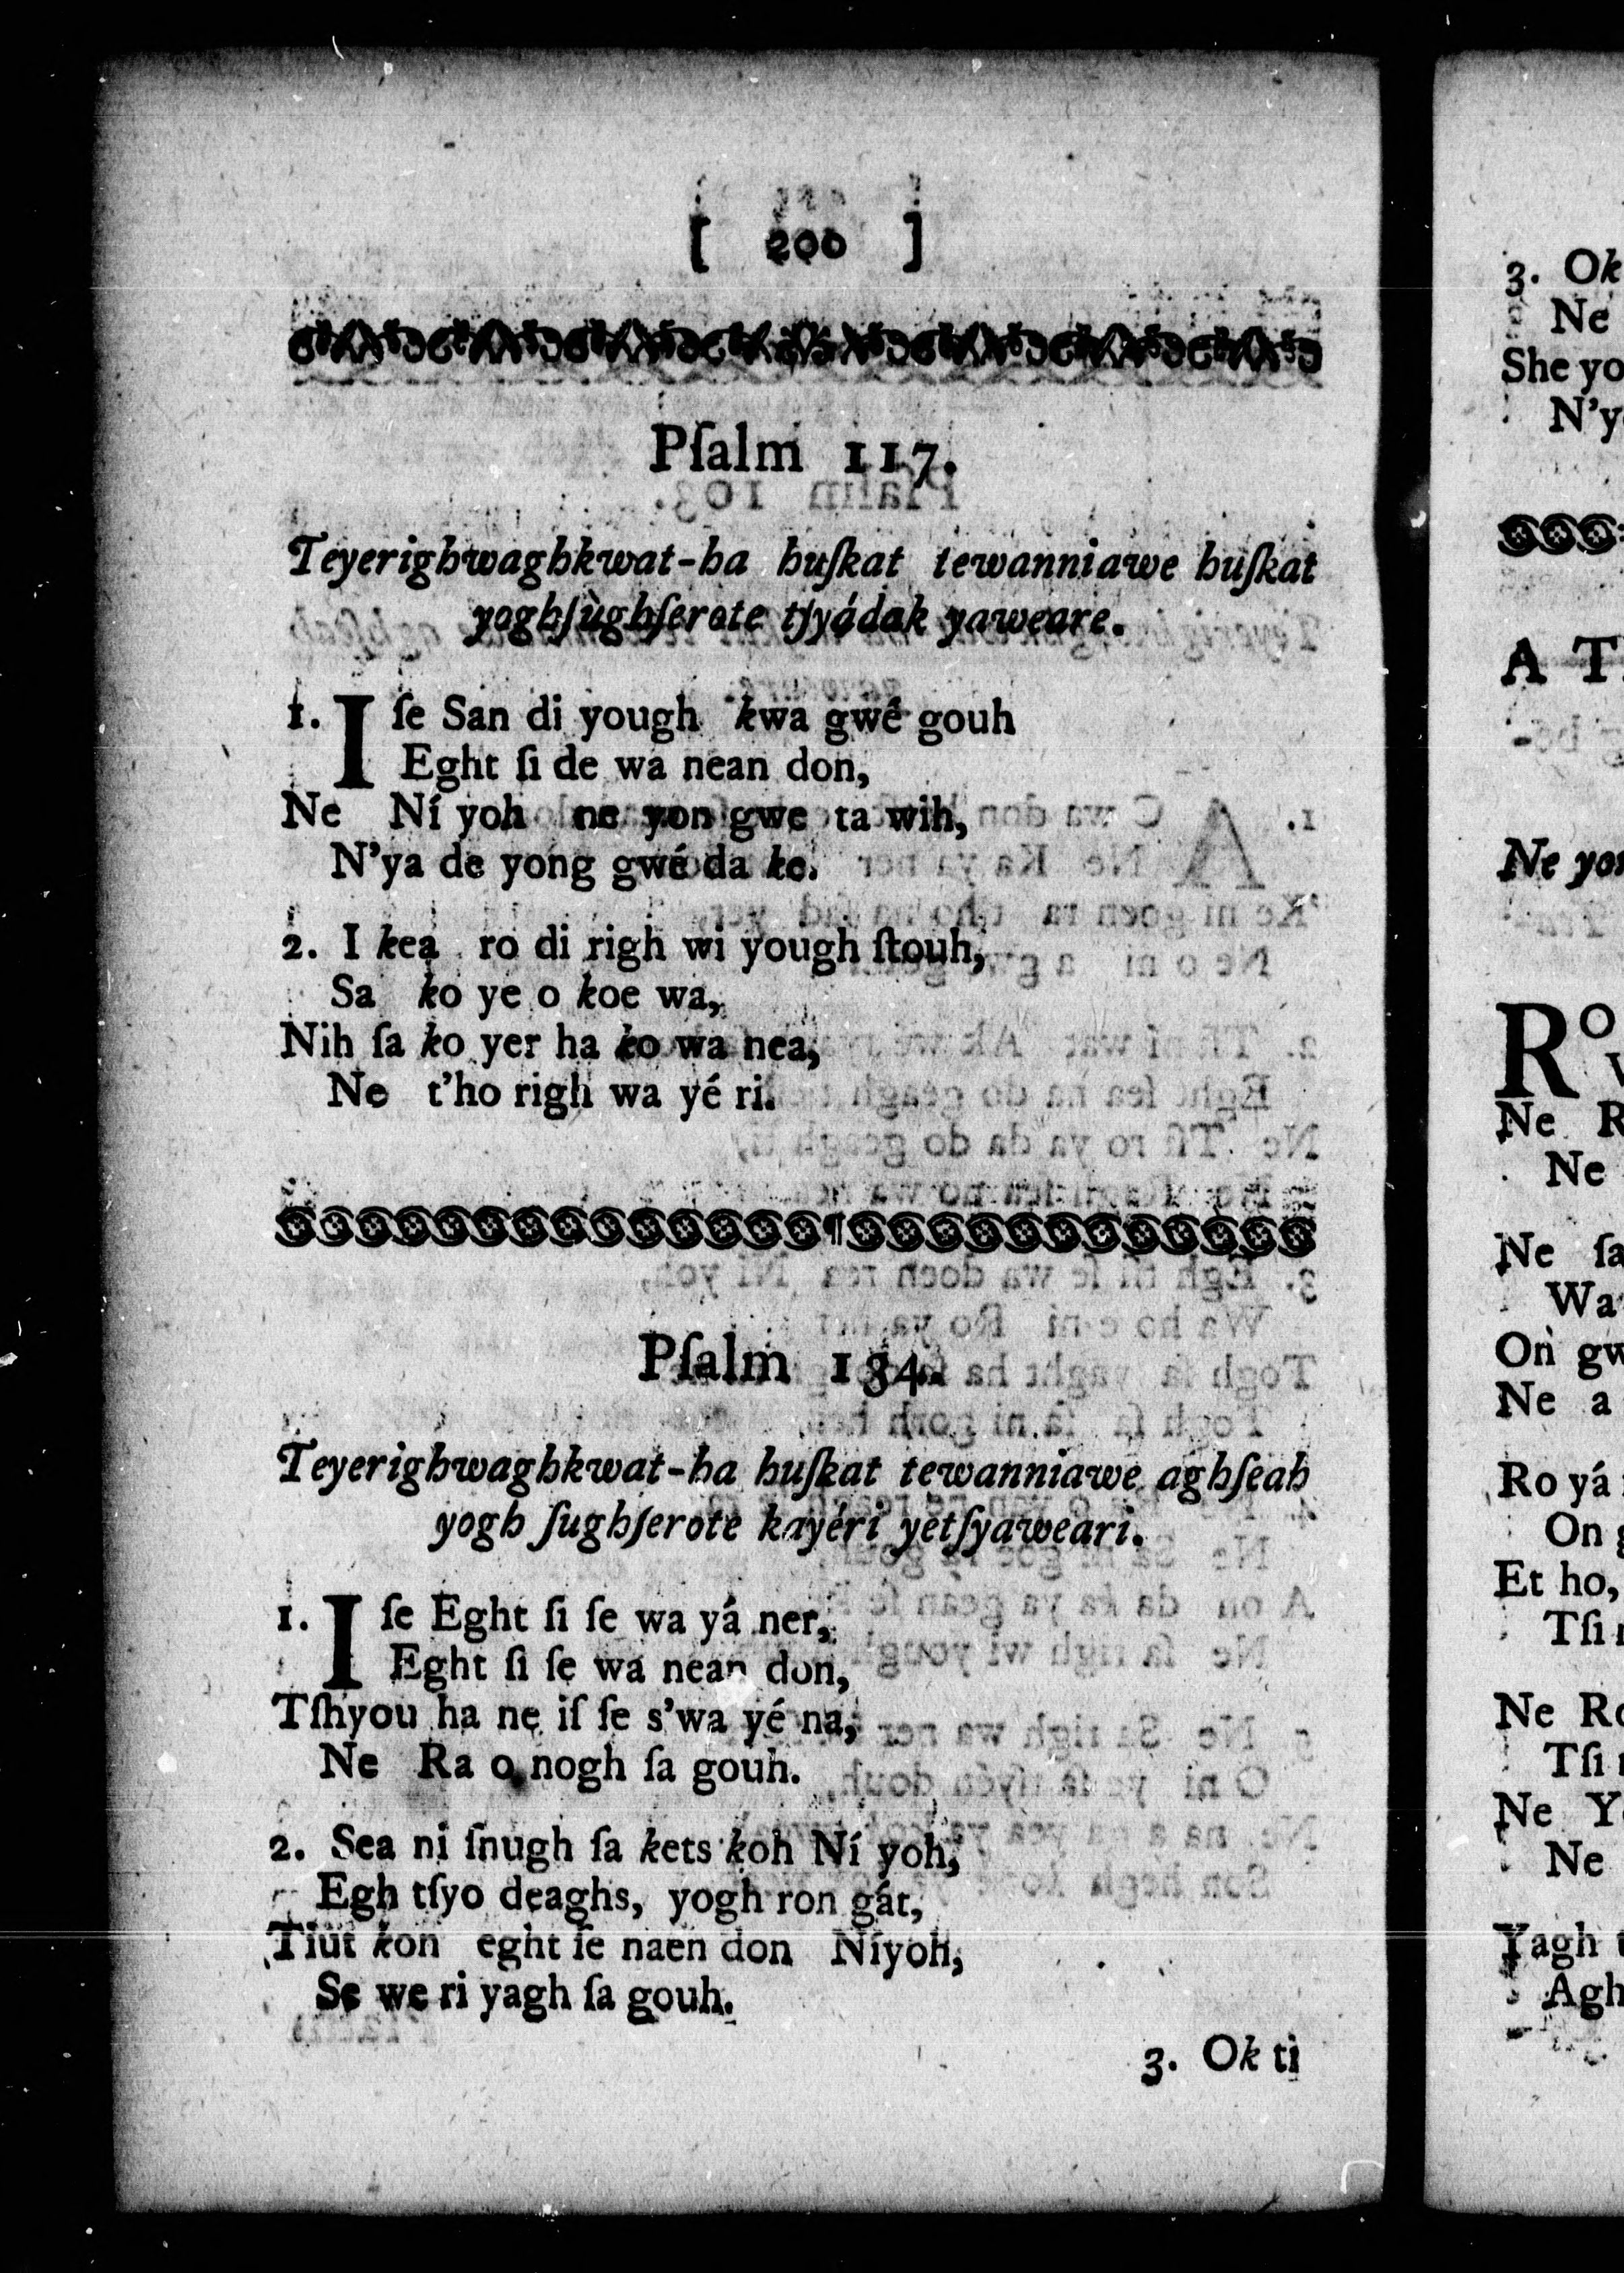 [ 200 ]
Pſalm 117.
Teyerighwaghkwat-ha huſkat tewanniawe huſkat
yoghſùghſerote tſyádak yaweare.
1. I ſe San di yough kwa gwé gouh
Eght ſi de wa nean don,
Ne Ní yoh ne yon gwe ta wih,
N'ya de yong gwé da ke.
2. I kea ro di righ wi yough ſtouh,
Sa ko ye o koe wa,
Nih ſa ko yer ha ko wa nea,
Ne t'ho righ wa yé ri.
Pſalm 134.
Teyerighwaghkwat-ha huſkat tewanniawe aghſeah
yogh ſughſerote kayéri yetſyaweari.
1. I ſe Eght ſi ſe wa yá ner,
Eght ſi ſe wa nean don,
Tſhyou ha ne iſ ſe s'wa yé na,
Ne Ra o nogh ſa gouh.
2. Sea ni ſnugh ſa kets koh Ní yoh,
Egh tſyo deaghs, yogh ron gát,
Tiut kon eght ſe naen don Níyoh,
Se we ri yagh ſa gouh.
3. Ok ti
3. Ok
Ne
She yo
N'y
A T
Ne yo
Ro
Ne R
Ne
Ne ſa
Wa
On gw
Ne a
Ro yá
On
Et ho,
Tſi
Ne Ro
Tſi
Ne Y
Ne
Yagh
Agh